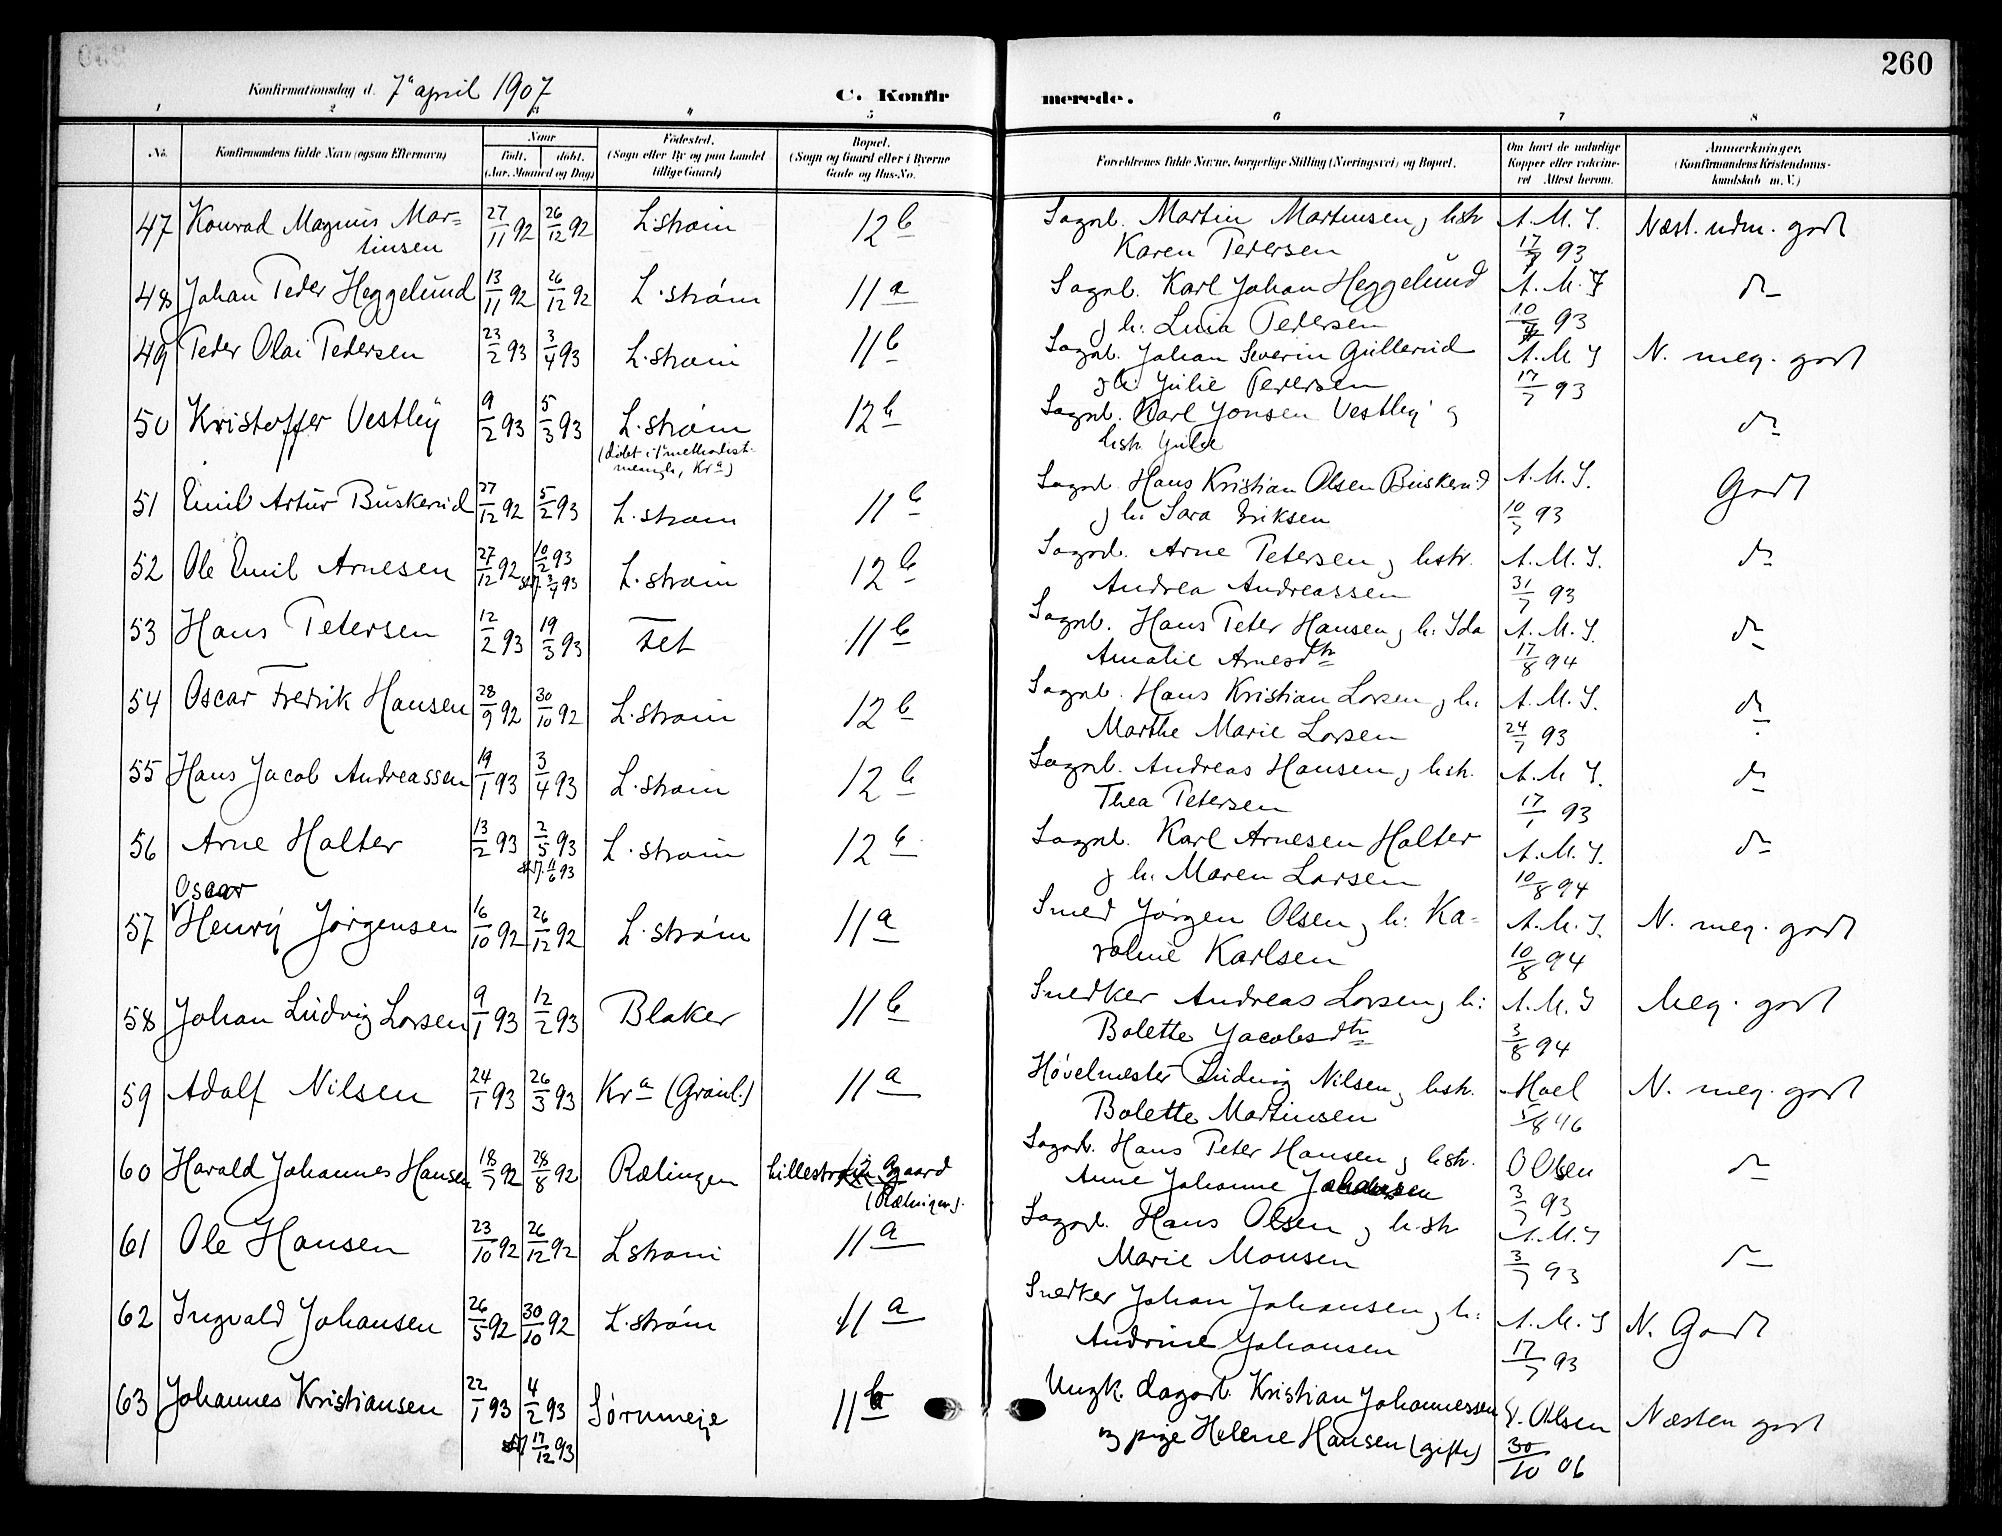 260
Konfirmationsdag d. 7de april 1907
C. Konfirmerede.
1 2 3 4 5 6 7 8
No.
Konfirmandens fulde Navn (ogsaa Efternavn)
Naar
født. døbt.
(Aar, Maaned og Dag)
Fødested.
(Sogn eller By og paa Landet
tillige Gaard)
Bopæl.
(Sogn og Gaard eller i Byerne
Gade og Hus-No.
Forældrenes fulde Navne, borgerlige Stilling (Næringsvei) og Bopæl.
Om havt de naturlige
Kopper eller vakcine-
ret Attest herom.
Anmærkninger.
(Konfirmandens Kristendoms-
kundskab m.V.)
47 Konrad Magnus Mar- 27/11 92 26/12 92 L.strøm 12 b Sagarb. Martin Martinsen, hstr A. M. S. Næst. udm. godt
tinsen Karen Pedersen 17/7 93
48 Johan Peder Heggelund 13/11 92 26/12 92 L.strøm 11 a Sagarb. Karl Johan Heggelund A. M. S do
og h. Lina Pedersen 10/7 93
49 Peder Olai Pedersen 23/2 93 3/4 93 L.strøm 11 b Sagarb. Johan Severin Gullerud A. M S N. meg. godt
og h. Julie Pedersen 17/7 93
50 Kristoffer Vestley 9/2 93 5/3 93 L.strøm 12 b Sagarb. Karl Jonsen Vestley og do
(døbt i 1ste methodist-
menigh., Kra) hstr Julie
51 Emil Artur Buskerud 27/12 92 5/2 93 L.strøm 11 b Sagarb. Hans Kristian Olsen Buskerud A. M. S. Godt
og h. Sara Eriksen 10/7 93
52 Ole Emil Arnesen 27/12 92 10/2 93 L.strøm 12 b Sagarb. Arne Petersen, hstr. A. M. S. do
3/4 93 Andrea Andreassen 31/7 93
53 Hans Petersen 12/2 93 19/3 93 Fet 11 b Sagarb. Hans Peter Hansen, h. Ida A. M. S. do
Amalie Arnesdtr 17/8 94
54 Oscar Fredrik Hansen 28/9 92 30/10 92 L.strøm 12 b Sagarb. Hans Kristian Larsen, h. A. M. S. do
Marthe Marie Larsen 24/7 93
55 Hans Jacob Andreassen 19/1 93 3/4 93 L.strøm 12 b Sagarb. Andreas Hansen, hstr. A. M S. do
Thea Petersen 17/1 93
56 Arne Halter 13/2 93 2/5 93 L.strøm 12 b Sagarb. Karl Arnesen Halter A. M. S. do
11/6 93 og h. Maren Larsen 10/8 94
Oscar
57 Henry Jørgensen 16/10 92 26/12 92 L.strøm 11 a Smed Jørgen Olsen, h: Ka- A. M. S. N. meg. godt
roline Karlsen 10/8 94
58 Johan Ludvig Larsen 9/1 93 12/2 93 Blaker 11 b Snedker Andreas Larsen, h: A. M. S Meg. godt
Bolette Jacobsdtr 3/8 94
59 Adolf Nilsen 24/1 93 26/3 93 Kra (Grønl.) 11 a Høvelmester Ludvig Nilsen, hstr. Moel N. meg. godt
Bolette Martinsen
60 Harald Johannes Hansen 18/7 92 28/8 92 Rælingen Lillestrøm gaard Sagarb. Hans Peter Hansen, hstr. O Olsen do
(Rælingen). Anne Johanne 3/7 93
61 Ole Hansen 23/10 92 26/12 92 Lstrøm 11 a Sagarb. Hans Olsen, h.str A. M. S do
Marie Monsen 3/7 93
62 Ingvald Johansen 26/5 92 30/10 92 L.strøm 11 a Snedker Johan Johansen, h: A. M. S N. Godt
Andrine Johansen 17/7 93
63 Johannes Kristiansen 22/1 93 4/2 93 Sørumeje 11 b Ungk. dagarb. Kristian Johannessen Olsen Næsten godt
17/12 93 og pige Helene Hansen (gifte) 30/10 06